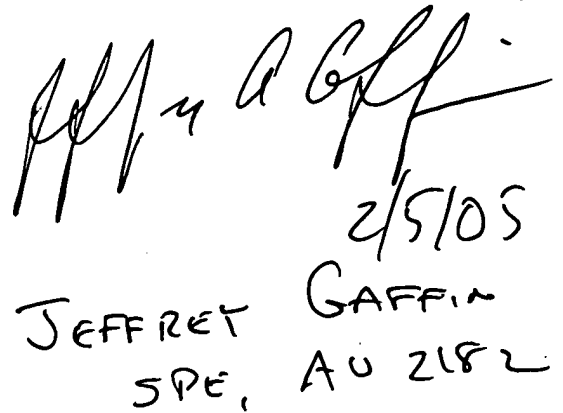 Jeffrey A Gaffin
2/5/05
JEFFREY GAFFIN
SPE, AU 2182